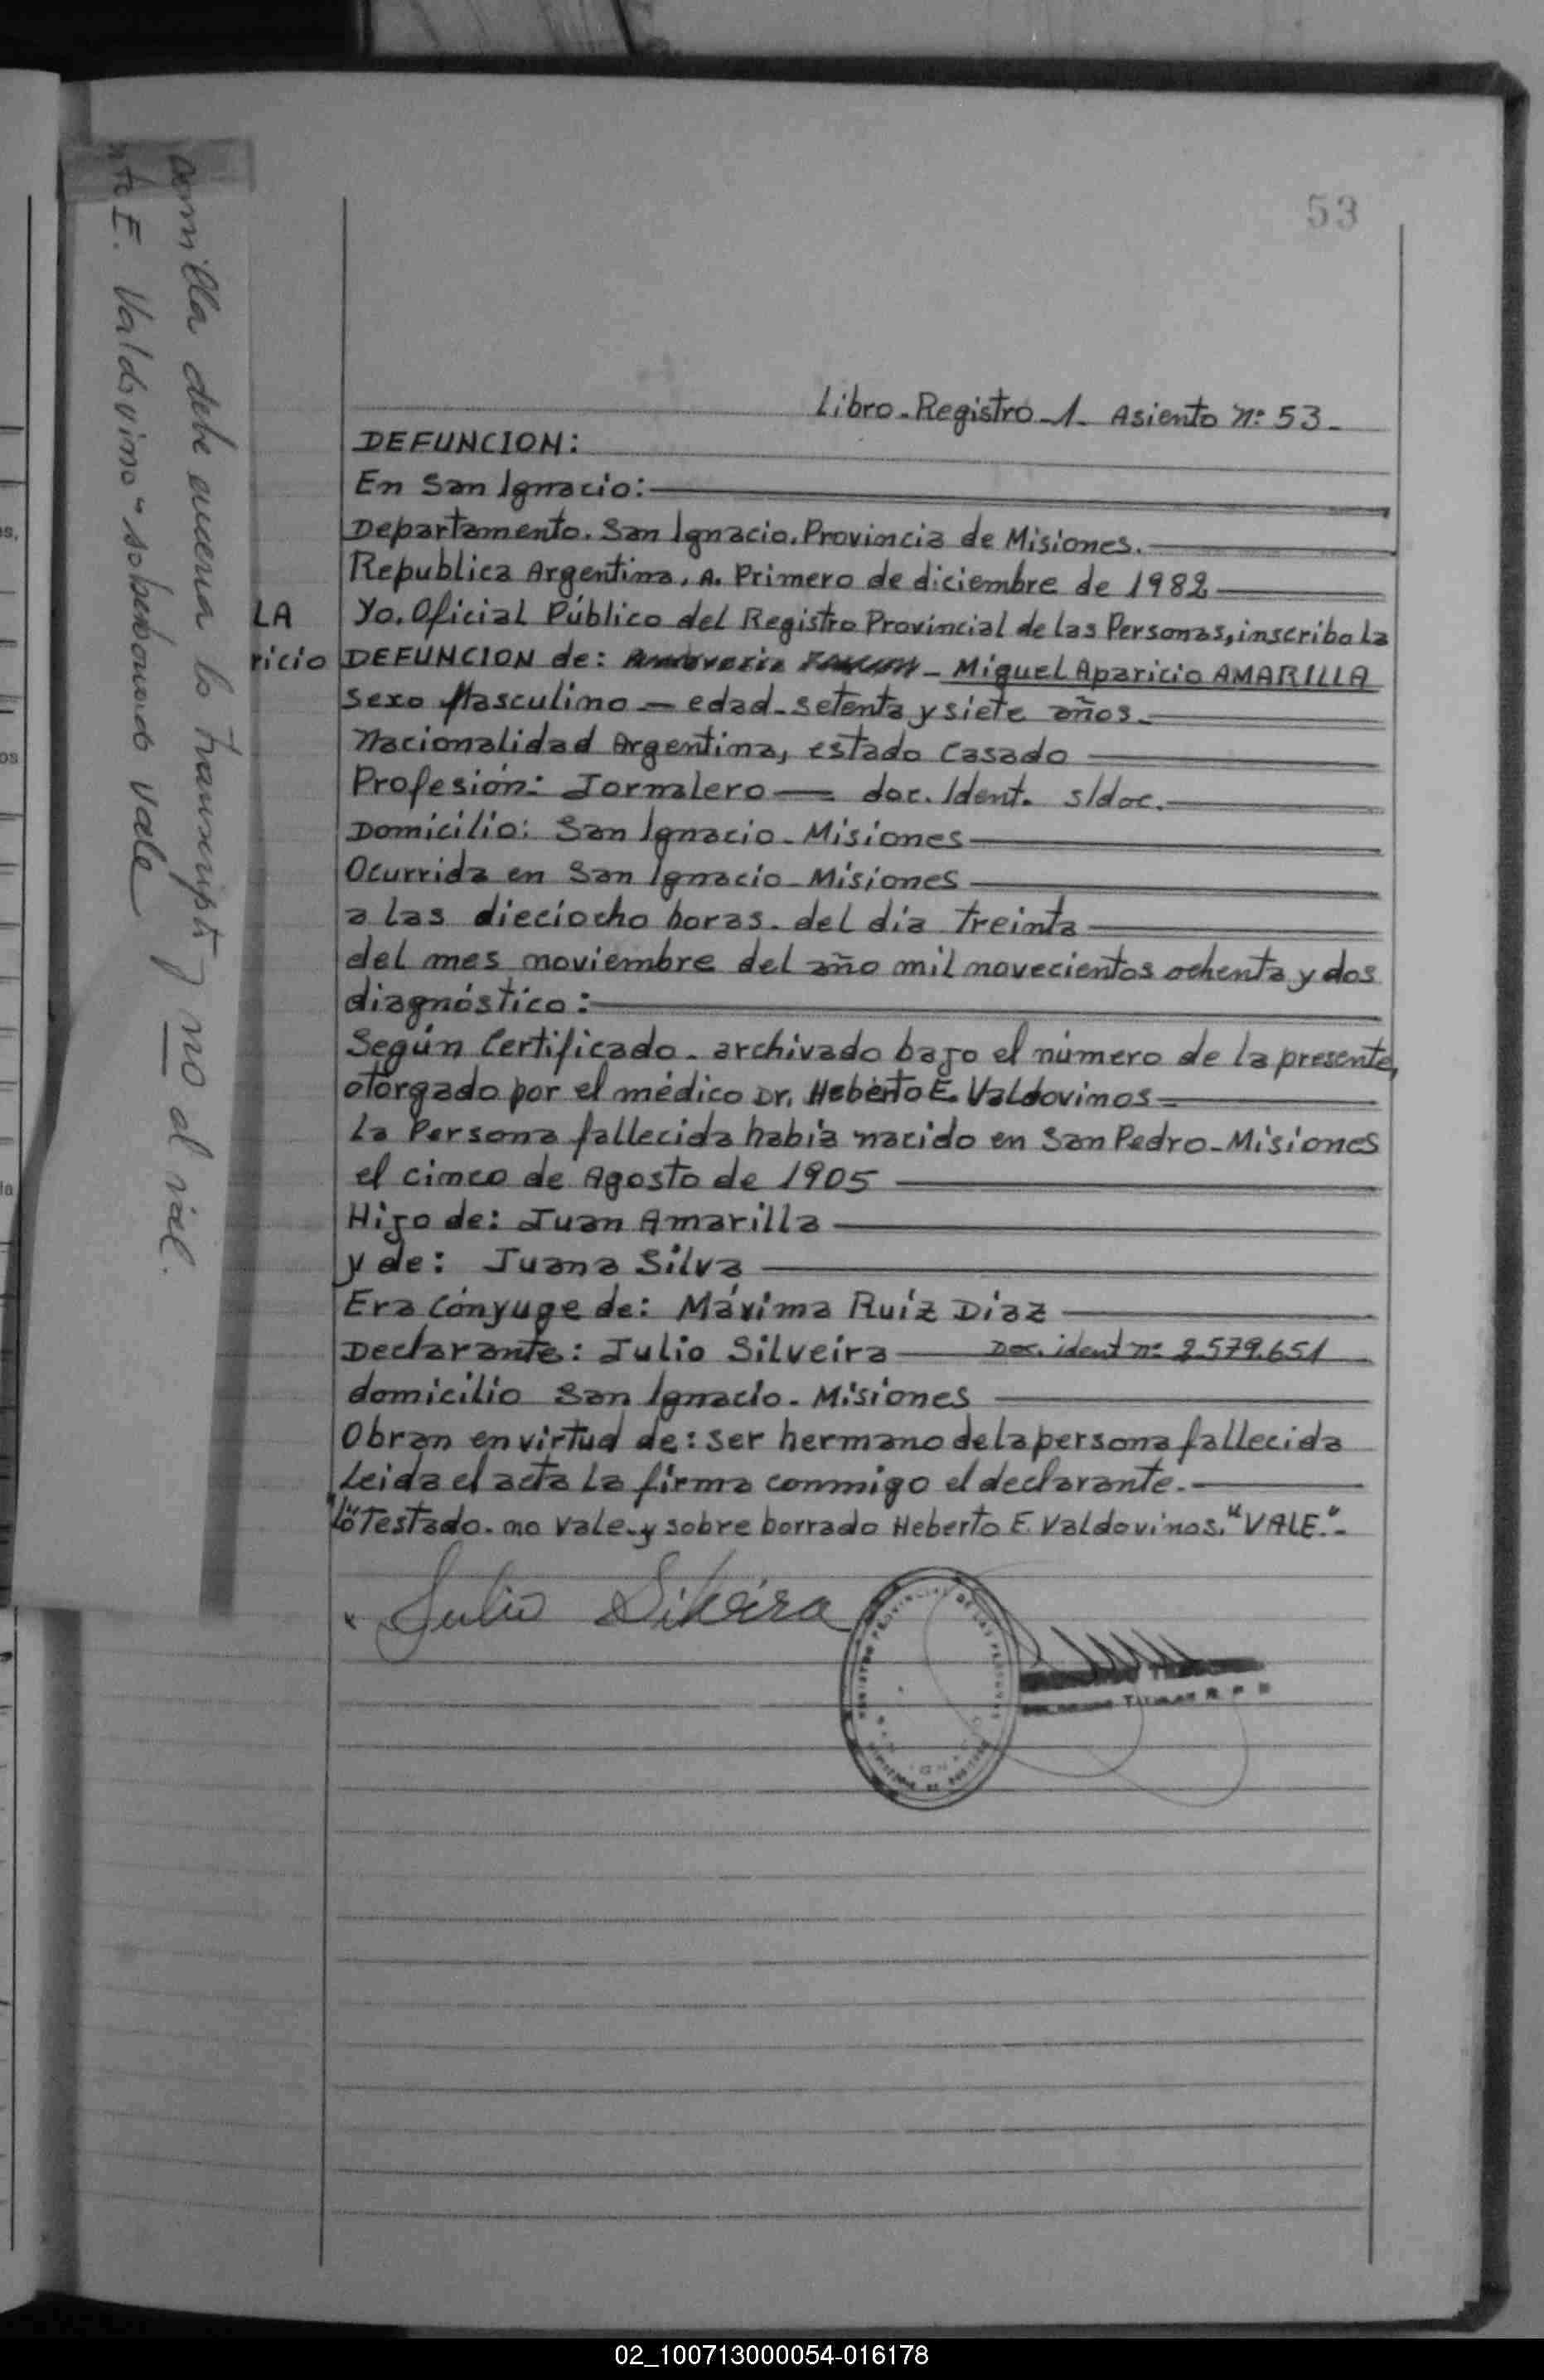 53
Libro-Registro-1- Asiento n: 53-
DEFUNCION:
En San Ignacio:
Departamento. San Ignacio. Provincia de Misiones.
Republica Argentina, A. Primero de diciembre de 1982
LA Yo. Oficial Público del Registro Provincial de las Personas, inscribo La
ricio DEFUNCION de: - Miguel Aparicio AMARILLA
sexo Masculino - edad - setenta y siete años -
Nacionalidad Argentina, estado Casado
Profesión: Jornalero - doc. Ident. s/doc.
Domicilio: San Ignacio - Misiones
Ocurrida en San Ignacio - Misiones
a las dieciocho horas. del día treinta
del mes noviembre del año mil novecientos ochenta y dos
diagnóstico:
Según Certificado - archivado bajo el número de la presente,
otorgado por el médico Dr. Heberto E. Valdovinos
La Persona fallecida había nacido en San Pedro - Misiones
el cinco de Agosto de 1905
Hijo de: Juan Amarilla
y de: Juana Silva
Era Cónyuge de: Máxima Ruíz Díaz
Declarante: Julio Silveira Doc. ident nº 2.579.651
domicilio San Ignacio - Misiones
Obran en virtud de: ser hermano de la persona fallecida
Leida el acta La firma conmigo el declarante.-
"Lo" Testado. no vale - y sobre borrado Heberto E. Valdovinos. "VALE."-
x Julio Silveira
REGISTRO PROVINCIAL DE LAS PERSONAS
debe lo no al
E. Valdovinos vale
02_100713000054-016178